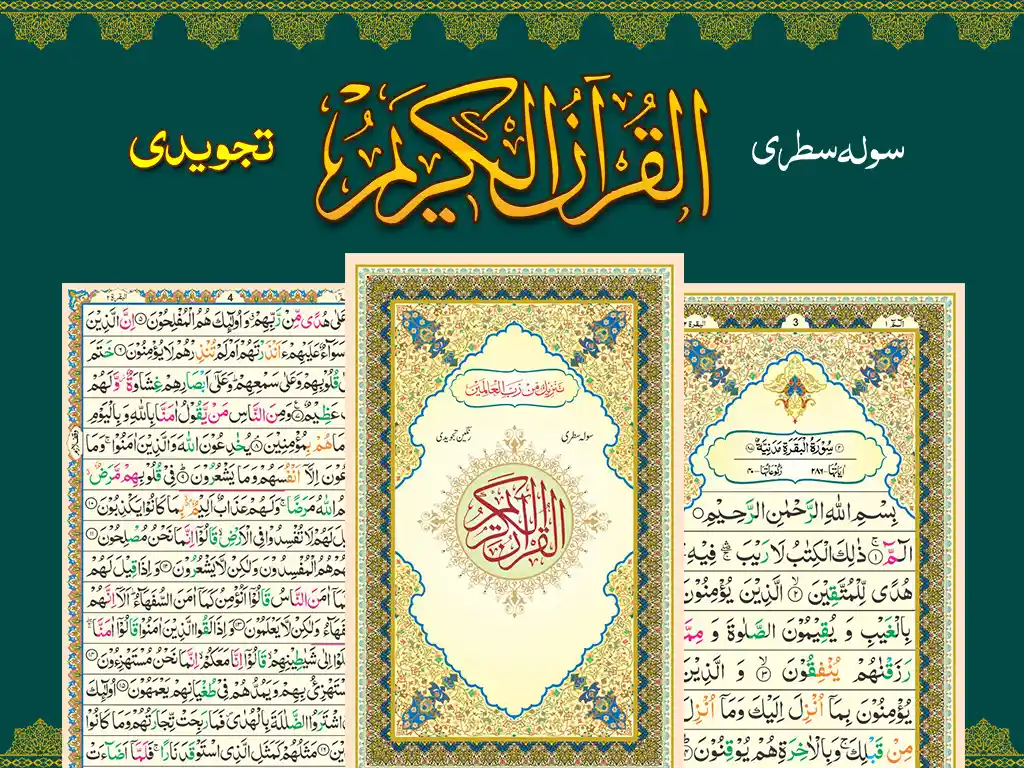 سولہ سطری
القرآن الکریم
تجویدی
الٓمّٓ ١
3
البقرة ٢
سُوْرَةُ الْبَقَرَةِ مَدَنِيَّةٌ
اٰيَاتُهَا ٢٨٦
رُكُوْعَاتُهَا ٤٠
بِسْمِ اللّٰهِ الرَّحْمٰنِ الرَّحِيْمِ
الٓمّٓ ۚ﴿۱﴾ ذٰلِكَ الْكِتٰبُ لَا رَيْبَ ۛۖ فِيْهِ
هُدًى لِّلْمُتَّقِيْنَ ﴿۲﴾ الَّذِيْنَ يُؤْمِنُوْنَ
بِالْغَيْبِ وَ يُقِيْمُوْنَ الصَّلٰوةَ وَ مِمَّا
رَزَقْنٰهُمْ يُنْفِقُوْنَ ﴿۳﴾ وَ الَّذِيْنَ
يُؤْمِنُوْنَ بِمَآ اُنْزِلَ اِلَيْكَ وَمَآ اُنْزِلَ
مِنْ قَبْلِكَ ۚ وَبِالْاٰخِرَةِ هُمْ يُوْقِنُوْنَ
تَنْزِيْلٌ مِّنْ رَّبِّ الْعَالَمِيْنَ
سولہ سطری
رنگین تجویدی
القرآن الکریم
4
البقرة ٢
عَلٰى هُدًى مِّنْ رَّبِّهِمْ ۗ وَاُولٰٓئِكَ هُمُ الْمُفْلِحُوْنَ ﴿۵﴾ اِنَّ الَّذِيْنَ
سَوَآءٌ عَلَيْهِمْ ءَاَنْذَرْتَهُمْ اَمْ لَمْ تُنْذِرْهُمْ لَا يُؤْمِنُوْنَ ﴿۶﴾ خَتَمَ
قُلُوْبِهِمْ وَعَلٰى سَمْعِهِمْ ۗ وَعَلٰٓى اَبْصَارِهِمْ غِشَاوَةٌ ۫ وَّلَهُمْ
عَظِيْمٌ ﴿۷﴾ وَمِنَ النَّاسِ مَنْ يَّقُوْلُ اٰمَنَّا بِاللّٰهِ وَبِالْيَوْمِ
مَا هُمْ بِمُؤْمِنِيْنَ ﴿۸﴾ يُخٰدِعُوْنَ اللّٰهَ وَالَّذِيْنَ اٰمَنُوْا ۚ وَمَا
اِلَّآ اَنْفُسَهُمْ وَمَا يَشْعُرُوْنَ ﴿۹﴾ فِيْ قُلُوْبِهِمْ مَّرَضٌ
اللّٰهُ مَرَضًا ۚ وَلَهُمْ عَذَابٌ اَلِيْمٌ ۢ بِمَا كَانُوْا يَكْذِبُوْنَ ﴿۱۰﴾
لَهُمْ لَا تُفْسِدُوْا فِى الْاَرْضِ ۙ قَالُوْٓا اِنَّمَا نَحْنُ مُصْلِحُوْنَ ﴿۱۱﴾
هُمُ الْمُفْسِدُوْنَ وَلٰكِنْ لَّا يَشْعُرُوْنَ ﴿۱۲﴾ وَاِذَا قِيْلَ لَهُمْ
اٰمَنَ النَّاسُ قَالُوْٓا اَنُؤْمِنُ كَمَآ اٰمَنَ السُّفَهَآءُ ۗ اَلَآ اِنَّهُمْ
وَلٰكِنْ لَّا يَعْلَمُوْنَ ﴿۱۳﴾ وَاِذَا لَقُوا الَّذِيْنَ اٰمَنُوْا قَالُوْٓا اٰمَنَّا
اِلٰى شَيٰطِيْنِهِمْ ۙ قَالُوْٓا اِنَّا مَعَكُمْ ۙ اِنَّمَا نَحْنُ مُسْتَهْزِءُوْنَ ﴿۱۴﴾
بِهِمْ وَيَمُدُّهُمْ فِيْ طُغْيَانِهِمْ يَعْمَهُوْنَ ﴿۱۵﴾ اُولٰٓئِكَ
اشْتَرَوُا الضَّلٰلَةَ بِالْهُدٰى ۪ فَمَا رَبِحَتْ تِّجَارَتُهُمْ وَمَا كَانُوْا
مَثَلُهُمْ كَمَثَلِ الَّذِى اسْتَوْقَدَ نَارًا ۚ فَلَمَّآ اَضَآءَتْ